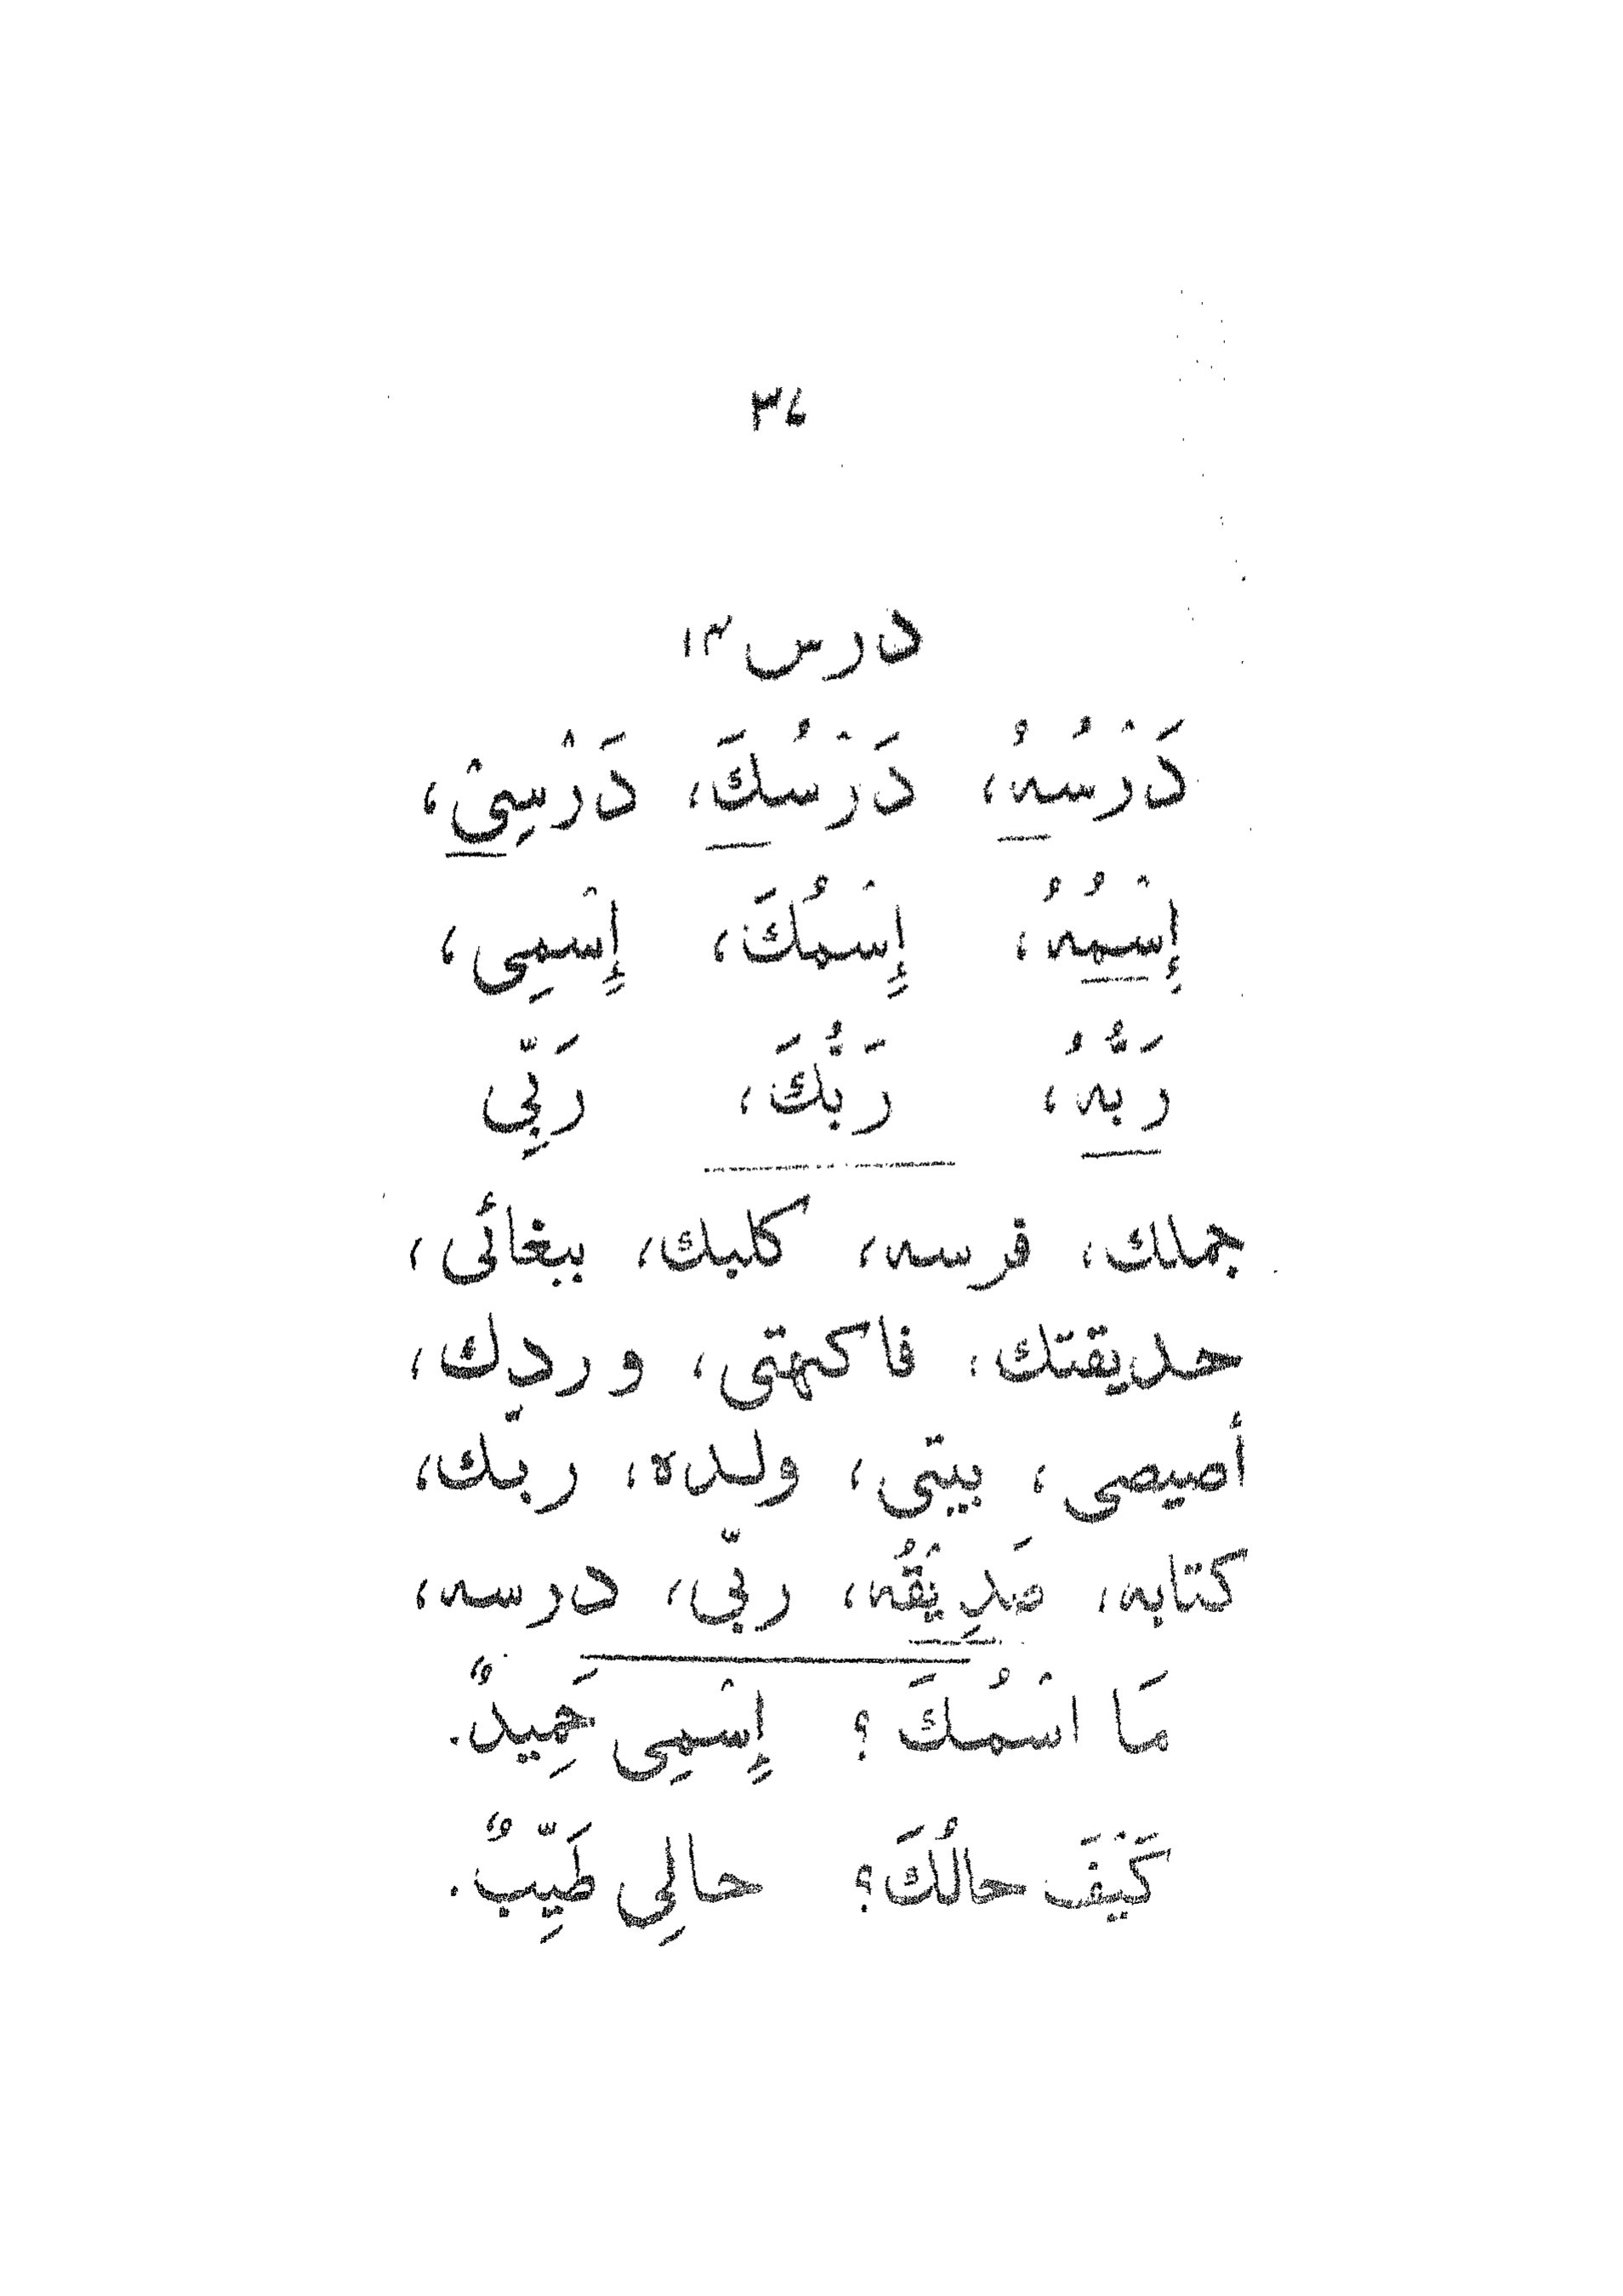 ٣٤
درس ١٣
دَرْسُهُ، دَرْسُكَ، دَرْسِيْ،
إِسْمُهُ، إِسْمُكَ، إِسْمِى،
رَبُّهُ، رَبُّكَ، رَبِّى
جملك، فرسه، كلبك، ببغائى،
حديقتك، فاكهتى، وردِك،
أصيصى، بيتى، ولده، ربّك،
كتابه، صَدِيْقُه، ربّى، درسه،
مَا اسْمُكَ؟ إِسْمِى حَمِيدٌ.
كَيْفَ حالُكَ؟ حالِى طَيِّبٌ.